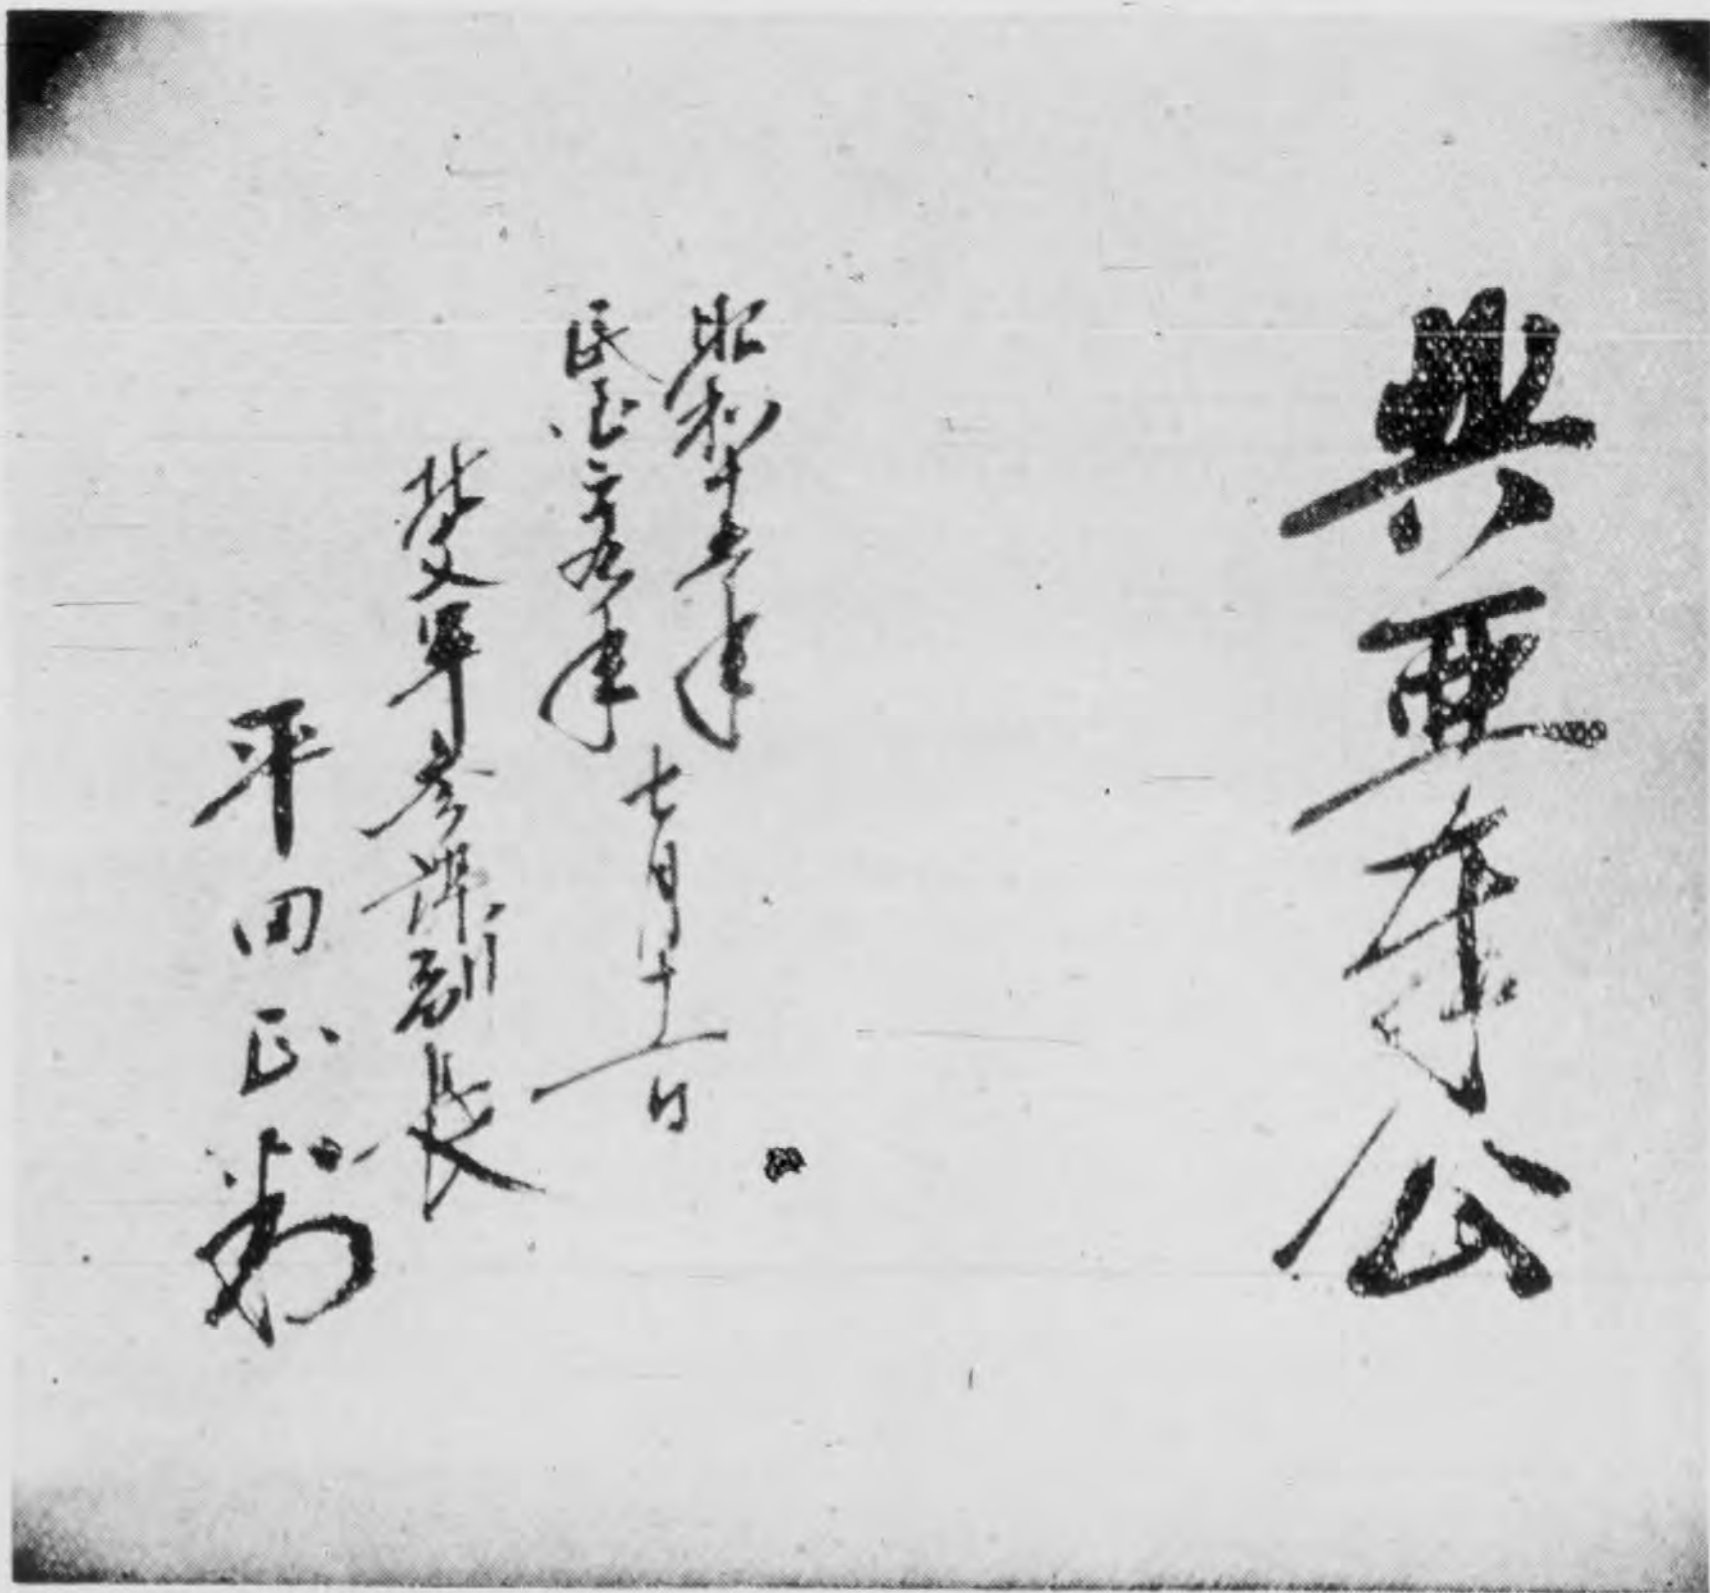 興亜奉公
昭和十五年
民国二十九年
七月十一日
北支軍参謀副長
平田正判